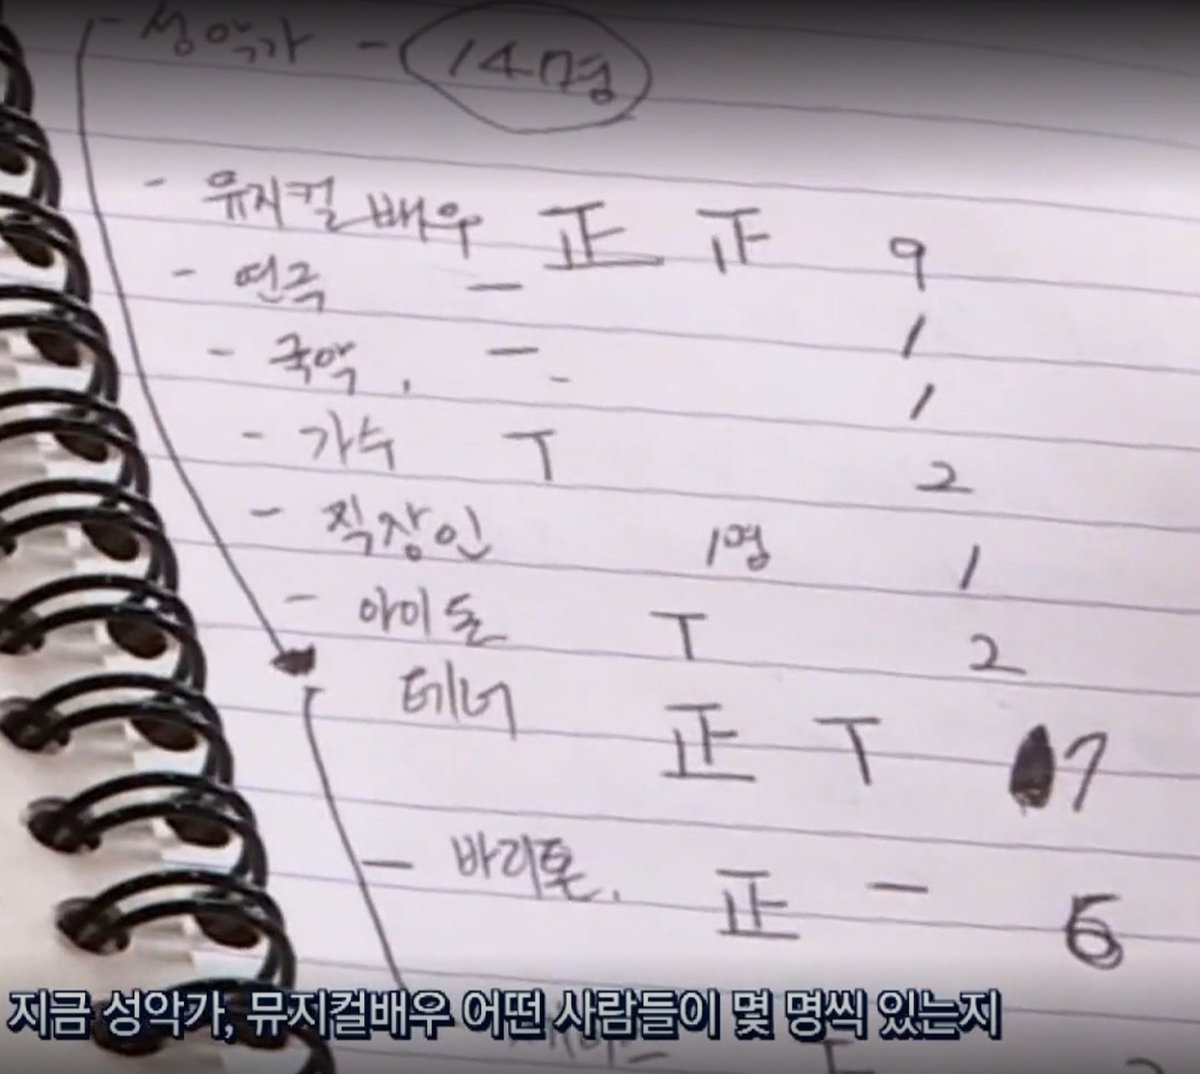 - 성악가 - 14명
- 뮤지컬 배우 正 正 9
- 연극 一 1
- 국악. 一 1
- 가수 T 2
- 직장인 1명 1
- 아이돌 T 2
테너 正 T 7
- 바리톤. 正 一 6
지금 성악가, 뮤지컬배우 어떤 사람들이 몇 명씩 있는지